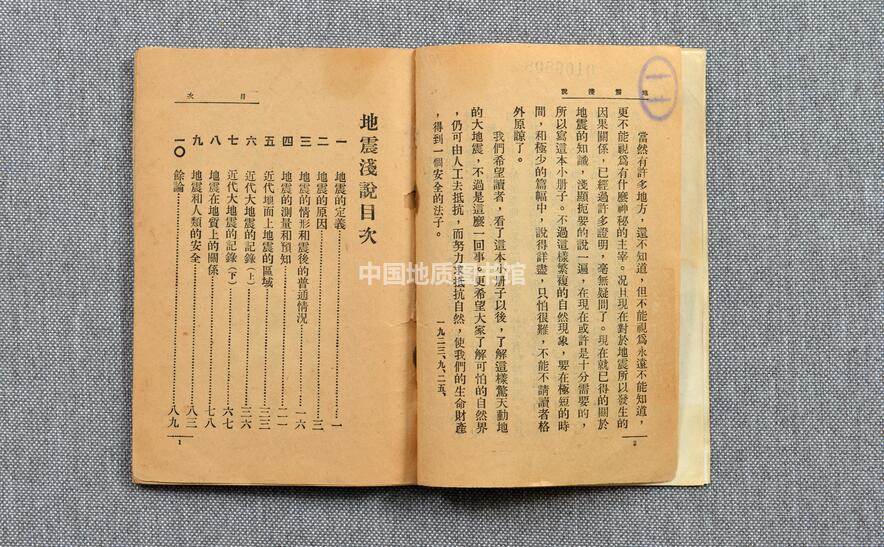 地震淺說
當然有許多地方，還不知道，但不能視爲永遠不能知道，
更不能視爲有什麼神秘的主宰。况且現在對於地震所以發生的
因果關係，已經過許多證明，毫無疑問了。現在就已得的關於
地震的知識，淺顯扼要的說一遍，在現在或許是十分需要的，
所以寫這本小册子。不過這樣繁複的自然現象，要在極短的時
間，和極少的篇幅中，說得詳盡，只怕很難，不能不請讀者格
外原諒了。
我們希望讀者，看了這本小册子以後，了解這樣驚天動地
的大地震，不過是這麼一回事。更希望大家了解可怕的自然界
，仍可由人工去抵抗，而努力求抵抗自然，使我們的生命財產
，得到一個安全的法子。
一九二三、九、二五、
2
目次
地震淺說目次
一 地震的定義 一
二 地震的原因 三
三 地震的情形和震後的普通情況 一六
四 地震的測量和預知 二一
五 近代地面上地震的區域 三三
六 近代大地震的記錄（上） 三六
七 近代大地震的記錄（下） 六七
八 地震在地質上的關係 七八
九 地震和人類的安全 八三
一〇 餘論 八九
1
中国地质图书馆